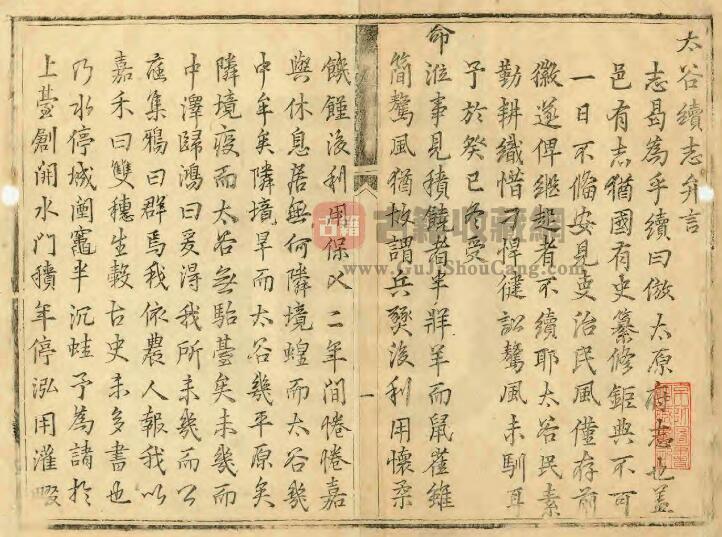 太谷續志弁言
志曷為乎續曰倣太原府志也蓋
邑有志猶國有史纂修鉅典不可
一日不脩安見吏治民風僅存前
徽遂俾繼起者不續耶太谷民素
勤耕織惜刁悍健訟驁風未馴耳
予於癸巳冬受
命涖事見積饒者半牂羊而鼠雀雖
簡驁風猶故謂兵燹後利用懷柔
饑饉後利用保乂二年間惓惓嘉
與休息居無何隣境蝗而太谷幾
中牟矣隣境旱而太谷幾平原矣
隣境疫而太谷無駘薹矣未幾而
中澤歸鴻曰爰得我所未幾而公
庭集鴉曰群焉我依農人報我以
嘉禾曰雙穗生穀古史未多書也
乃水停城闉竈半沉蛙予為請於
上臺創開水門積年停泓用灌畷
一
古籍
古籍收藏網
www.GuJiShouCang.com